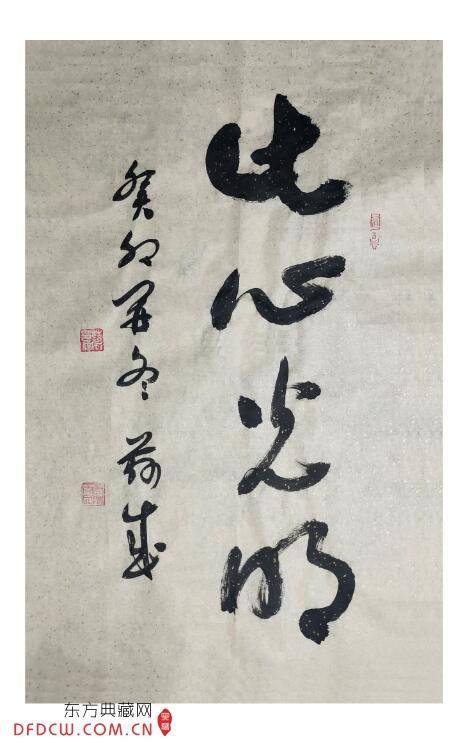 此心光明
癸卯孟冬
东方典藏网
DFDCW.COM.CN